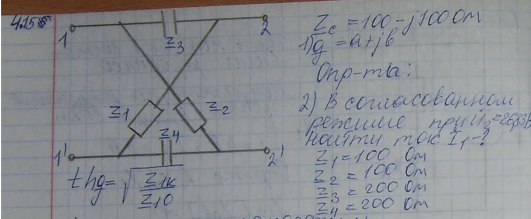 4.15
1
2
Z3
Z1
Z2
Z4
1'
2'
thg = √Z1к/Z10
Zc = 100 - j100 Ом
1) g = a + jb
Опр-ть:
2) В согласованном
режиме при
Найти ток I1 - ?
Z1 = 100 Ом
Z2 = 100 Ом
Z3 = 200 Ом
Z4 = 200 Ом